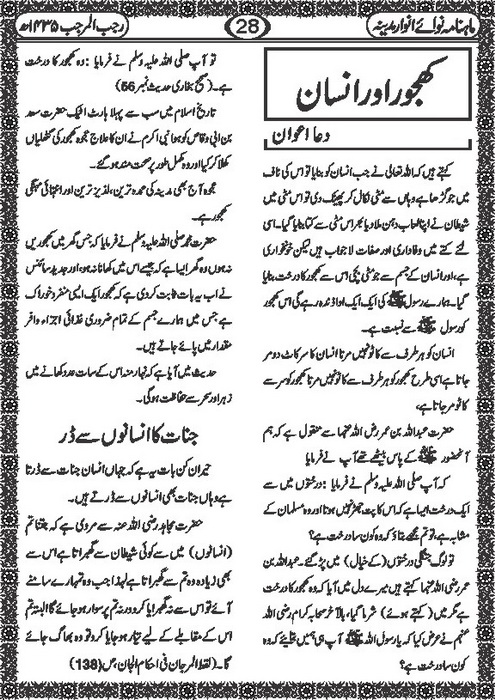 ماہنامہ نوائے انوار مدینہ
28
رجب المرجب ۱۴۳۵ھ
کھجور اور انسان
دعا اعوان
کہتے ہیں کہ اللہ تعالیٰ نے جب انسان کو بنایا تو اس کی ناف
میں جو گڑھا ہے وہاں سے مٹی نکال کر پھینک دی تو اس مٹی میں
شیطان نے اپنا لعاب دہن ملا دیا پھر اس مٹی سے کتا بنایا گیا۔ اسی
لئے کتے میں وفاداری اور صفات لاجواب ہیں لیکن خونخواری
ہے، اور انسان کے جسم سے جو مٹی بچی اس سے کھجور کا درخت بنایا
گیا۔ ہمارے رسول ﷺ کی ایک ایک ادا زندہ رہے گی اس کھجور
کو رسول ﷺ سے نسبت ہے۔
انسان کو ہر طرف سے کاٹو نہیں مرتا انسان کا سر کاٹ دو مر
جاتا ہے اسی طرح کھجور کو ہر طرف سے کاٹو نہیں مرتا کھجور کو سر سے
کاٹو مر جاتا ہے،
حضرت عبداللہ بن عمر رضی اللہ عنہما سے منقول ہے کہ ہم
آنحضور ﷺ کے پاس بیٹھے تھے آپ نے فرمایا
کہ آپ صلی اللہ علیہ وسلم نے فرمایا : درختوں میں سے
ایک درخت ایسا ہے کہ اس کا پت جھڑ نہیں ہوتا اور وہ مسلمان کے
مشابہ ہے، تو تم مجھے بتاؤ کہ وہ کون سا درخت ہے؟
تو لوگ جنگلی درختوں (کے خیال) میں پڑ گئے۔ عبداللہ بن
عمر رضی اللہ عنہما کہتے ہیں میرے دل میں آیا کہ وہ کھجور کا درخت
ہے مگر میں (کہتے ہوئے) شرما گیا، بالآخر صحابہ کرام رضی اللہ
عنہم نے عرض کیا کہ یا رسول اللہ ﷺ آپ ہی ہمیں بتلایئے کہ وہ
کون سا درخت ہے؟
تو آپ صلی اللہ علیہ وسلم نے فرمایا : وہ کھجور کا درخت
ہے۔ (صحیح بخاری حدیث نمبر 56)
تاریخ اسلام میں سب سے پہلا ہارٹ اٹیک حضرت سعد
بن ابی وقاص کو ہوا نبی اکرم نے ان کا علاج عجوہ کھجور کی گٹھلیاں
کھلا کر کیا اور وہ مکمل طور پر صحت مند ہو گئے۔
عجوہ آج بھی مدینہ کی عمدہ ترین، لذیز ترین اور انتہائی مہنگی
کھجور ہے۔
حضرت محمد صلی اللہ علیہ وسلم نے فرمایا کہ جس گھر میں کھجوریں
نہ ہوں وہ گھر ایسا ہے کہ جیسے اس میں کھانا نہ ہو ن اور جدید سائنس
نے اب یہ بات ثابت کر دی ہے کہ کھجور ایک ایسی منفرد خوراک
ہے جس میں ہمارے جسم کے تمام ضروری غذائی اجزاء وافر
مقدار میں پائے جاتے ہیں۔
حدیث میں آیا ہے کہ نہار منہ اس کے سات عدد کھانے میں
زہر اور سحر سے حفاظت ہو گی۔
جنات کا انسانوں سے ڈر
حیران کن بات یہ ہے کہ جہاں انسان جنات سے ڈرتا
ہے وہاں جنات بھی انسانوں سے ڈرتے ہیں۔
حضرت مجاہد رضی اللہ عنہ سے مروی ہے کہ جتنا تم
(انسانوں) میں سے کوئی شیطان سے گھبراتا ہے اس سے
بھی زیادہ وہ تم سے گھبراتا ہے لہٰذا جب وہ تمہارے سامنے
آئے تو اس سے نہ گھبرایا کرو ورنہ تم پر سوار ہو جائے گا البتہ تم
اس کے مقابلے کے لیے تیار ہو جایا کرو تو وہ بھاگ جائے
گا۔ (لقط المرجان فی احکام الجان، ص 138)